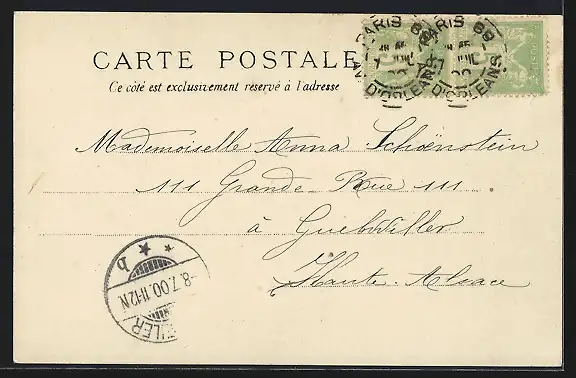 CARTE POSTALE
Ce côté est exclusivement réservé à l'adresse
PARIS 68
AV. D'ORLÉANS
PARIS 68
AV. D'ORLÉANS
Mademoiselle Anna Schoënstein
111 Grande-Rue 111.
à Guebwiller
Haute-Alsace
b
8.7.00.11-12N
ILER